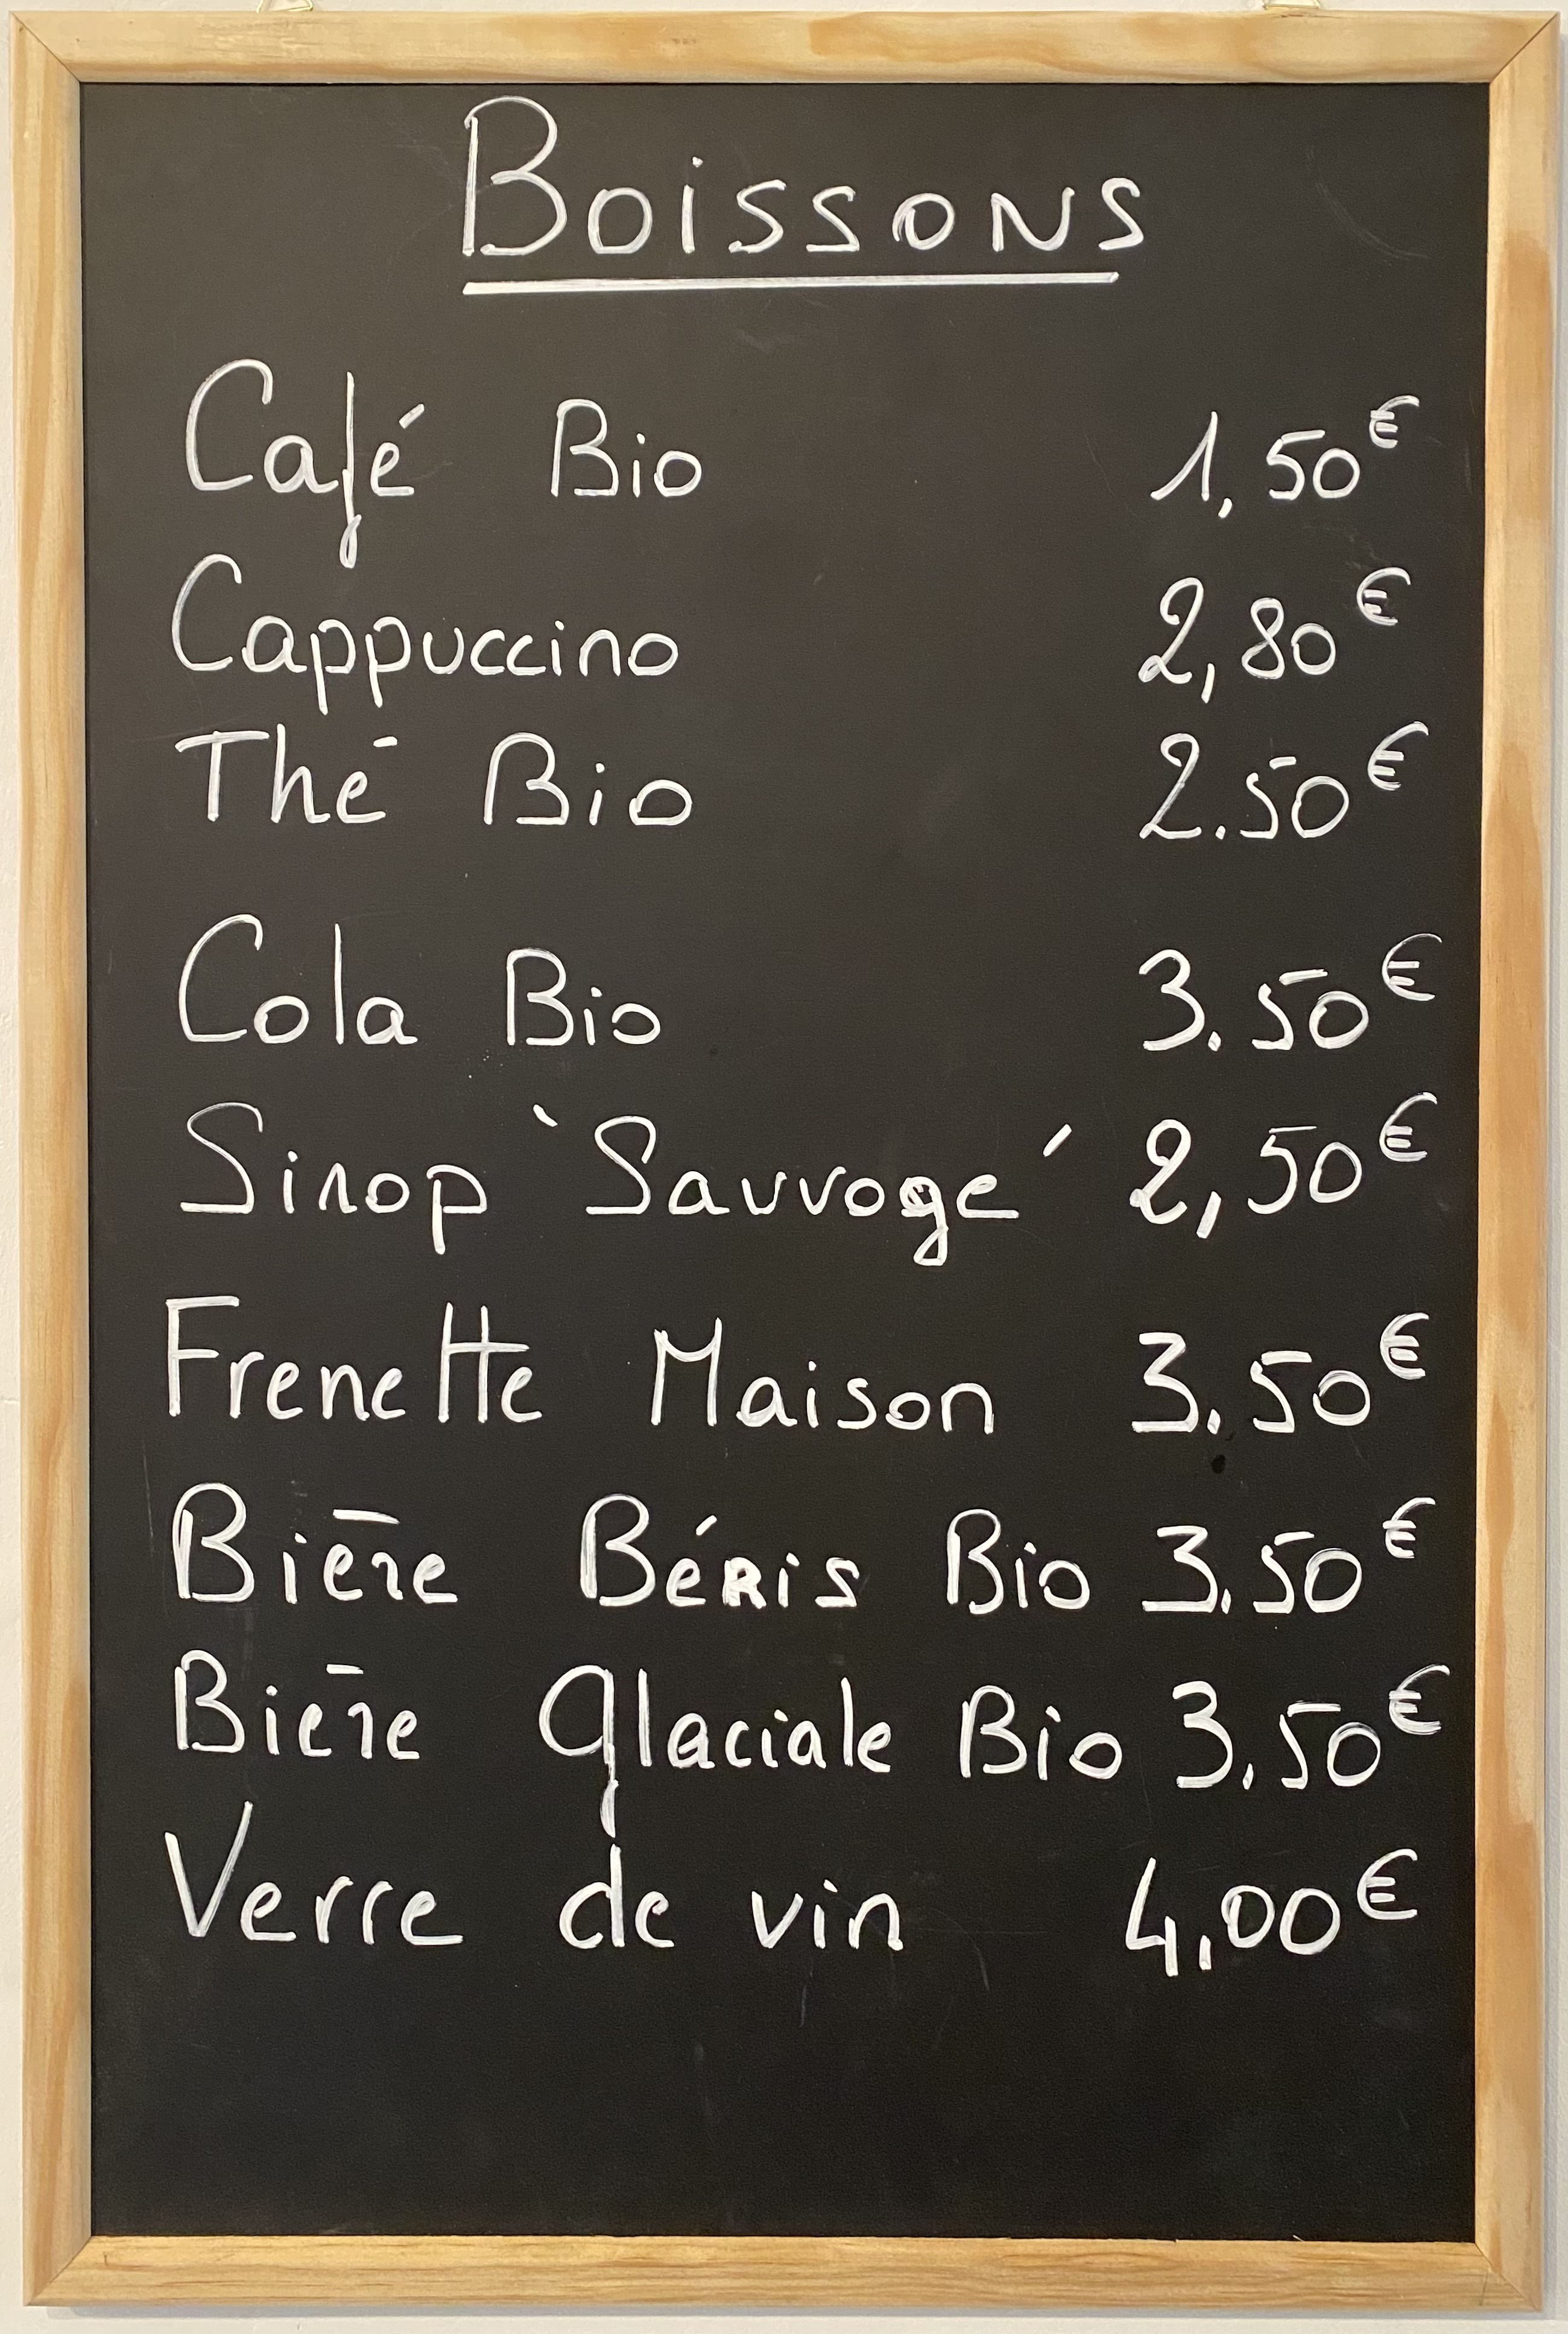 Boissons
Café Bio 1,50€
Cappuccino 2,80€
Thé Bio 2.50€
Cola Bio 3.50€
Sirop `Sauvage´ 2,50€
Frenette Maison 3.50€
Bière Béris Bio 3.50€
Bière glaciale Bio 3.50€
Verre de vin 4,00€